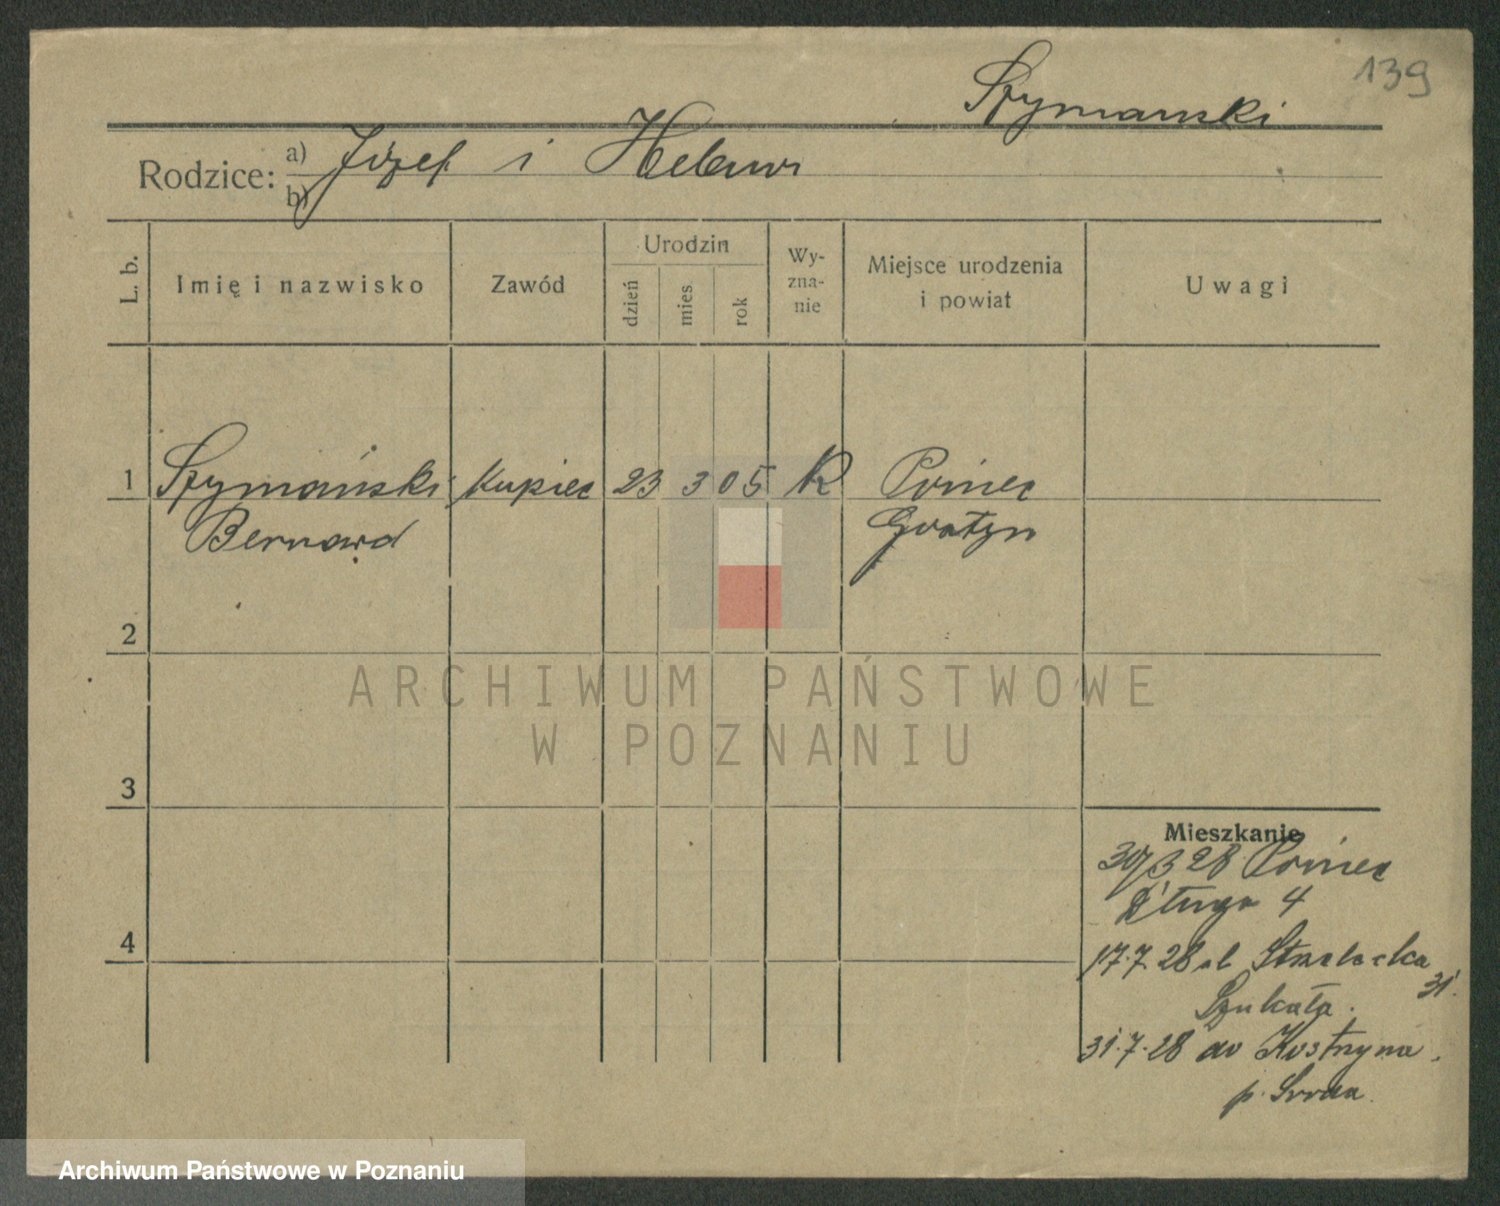 139
Szymanski
Rodzice: a) Józef i Helena
b)
L. b. Imię i nazwisko Zawód Urodzin dzień mies rok Wyznanie Miejsce urodzenia i powiat Uwagi
1 Szymański Kupiec 23 3 05 R Poniec
Bernard Gostyn
2
3
4
Mieszkanie
30/3 28 Poniec
Długa 4
17.7.28 ul Strzelecka
31.
Szukała.
31.7.28 do Kostrzyna.
p. Sroda
ARCHIWUM PAŃSTWOWE
W POZNANIU
Archiwum Państwowe w Poznaniu